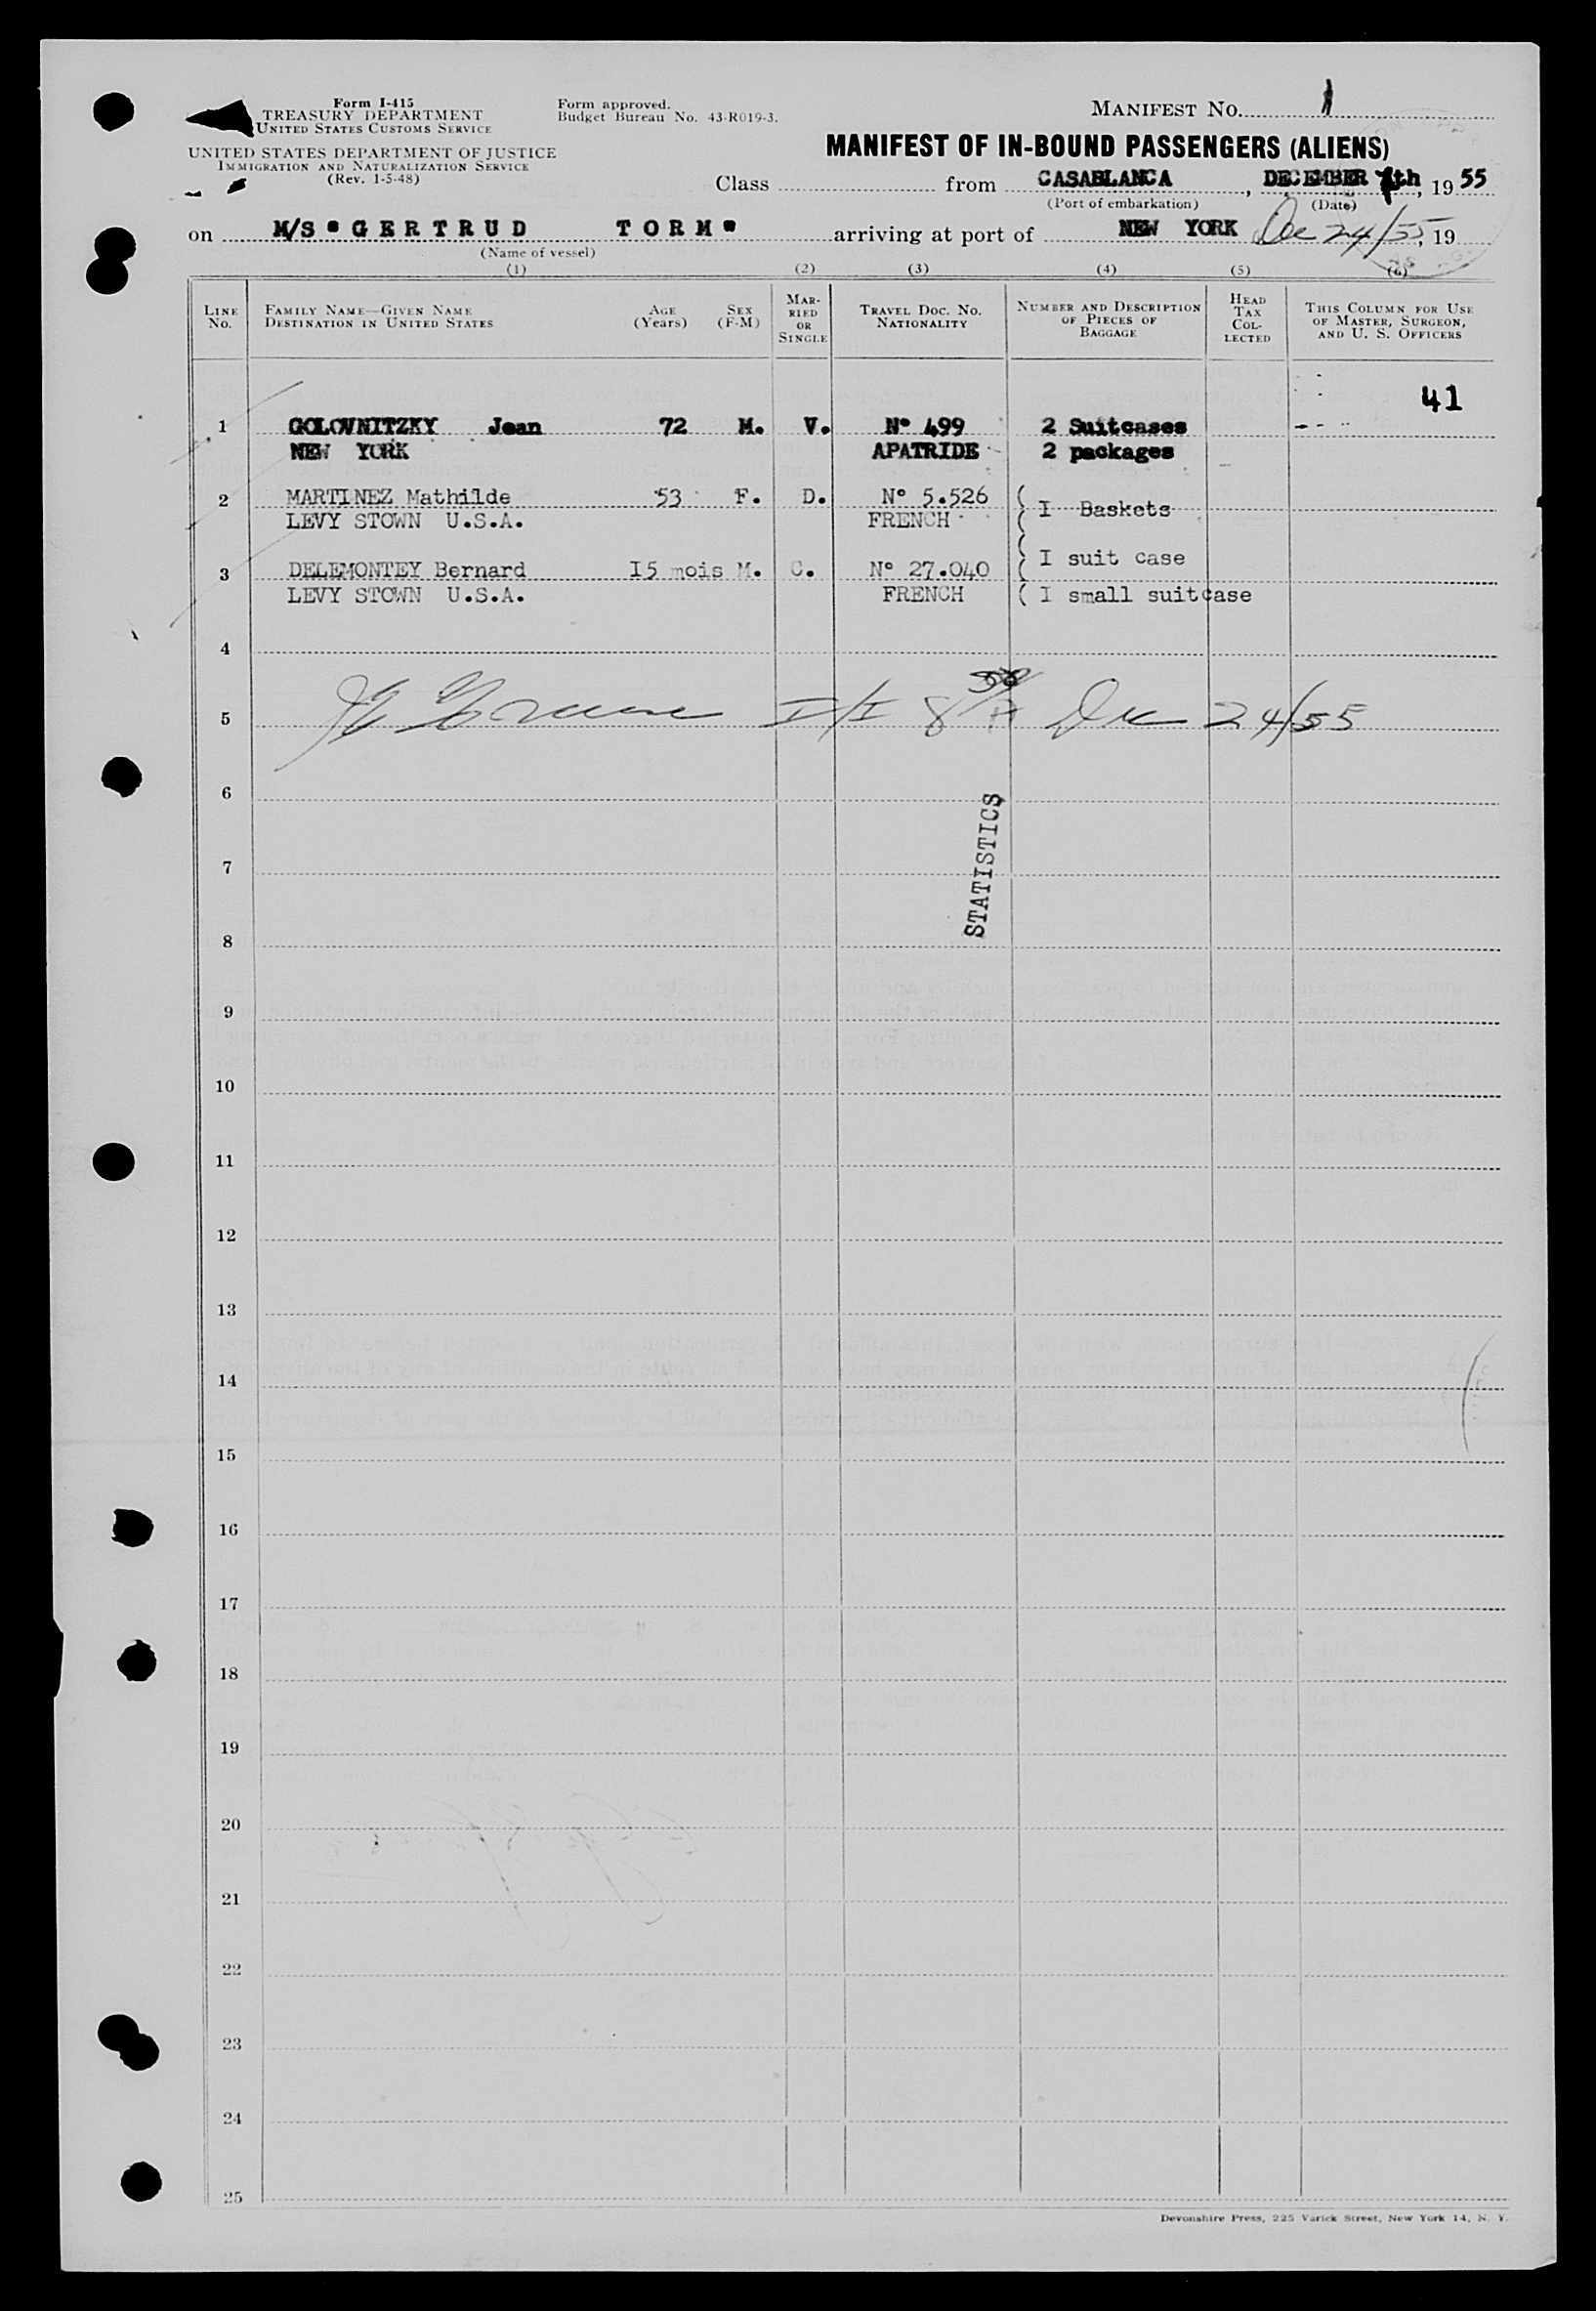 Form I-415
TREASURY DEPARTMENT
UNITED STATES CUSTOMS SERVICE
UNITED STATES DEPARTMENT OF JUSTICE
IMMIGRATION AND NATURALIZATION SERVICE
(Rev. 1-5-48)
Form approved.
Budget Bureau No. 43-R019-3.
MANIFEST NO. 1
MANIFEST OF IN-BOUND PASSENGERS (ALIENS)
Class from CASABLANCA, DECEMBER 7th, 19 55
(Port of embarkation) (Date)
on M/S "GERTRUD TORM" arriving at port of NEW YORK Dec 24/55, 19
(Name of vessel)
(1) (2) (3) (4) (5) (6)
LINE NO.
FAMILY NAME—GIVEN NAME
DESTINATION IN UNITED STATES
AGE (Years)
SEX (F-M)
MARRIED OR SINGLE
TRAVEL DOC. NO.
NATIONALITY
NUMBER AND DESCRIPTION
OF PIECES OF
BAGGAGE
HEAD TAX COLLECTED
THIS COLUMN FOR USE
OF MASTER, SURGEON,
AND U. S. OFFICERS
41
1 GOLOVNITZKY Jean 72 M. V. N° 499 2 Suitcases
NEW YORK APATRIDE 2 packages
2 MARTINEZ Mathilde 53 F. D. N° 5.526 ( I Baskets
LEVY STOWN U.S.A. FRENCH (
3 DELEMONTEY Bernard I5 mois M. C. N° 27.040 ( I suit case
LEVY STOWN U.S.A. FRENCH ( I small suitcase
4
5 I/I 8 Dec 24/55
6
STATISTICS
7
8
9
10
11
12
13
14
15
16
17
18
19
20
21
22
23
24
25
Devonshire Press, 225 Varick Street, New York 14, N. Y.